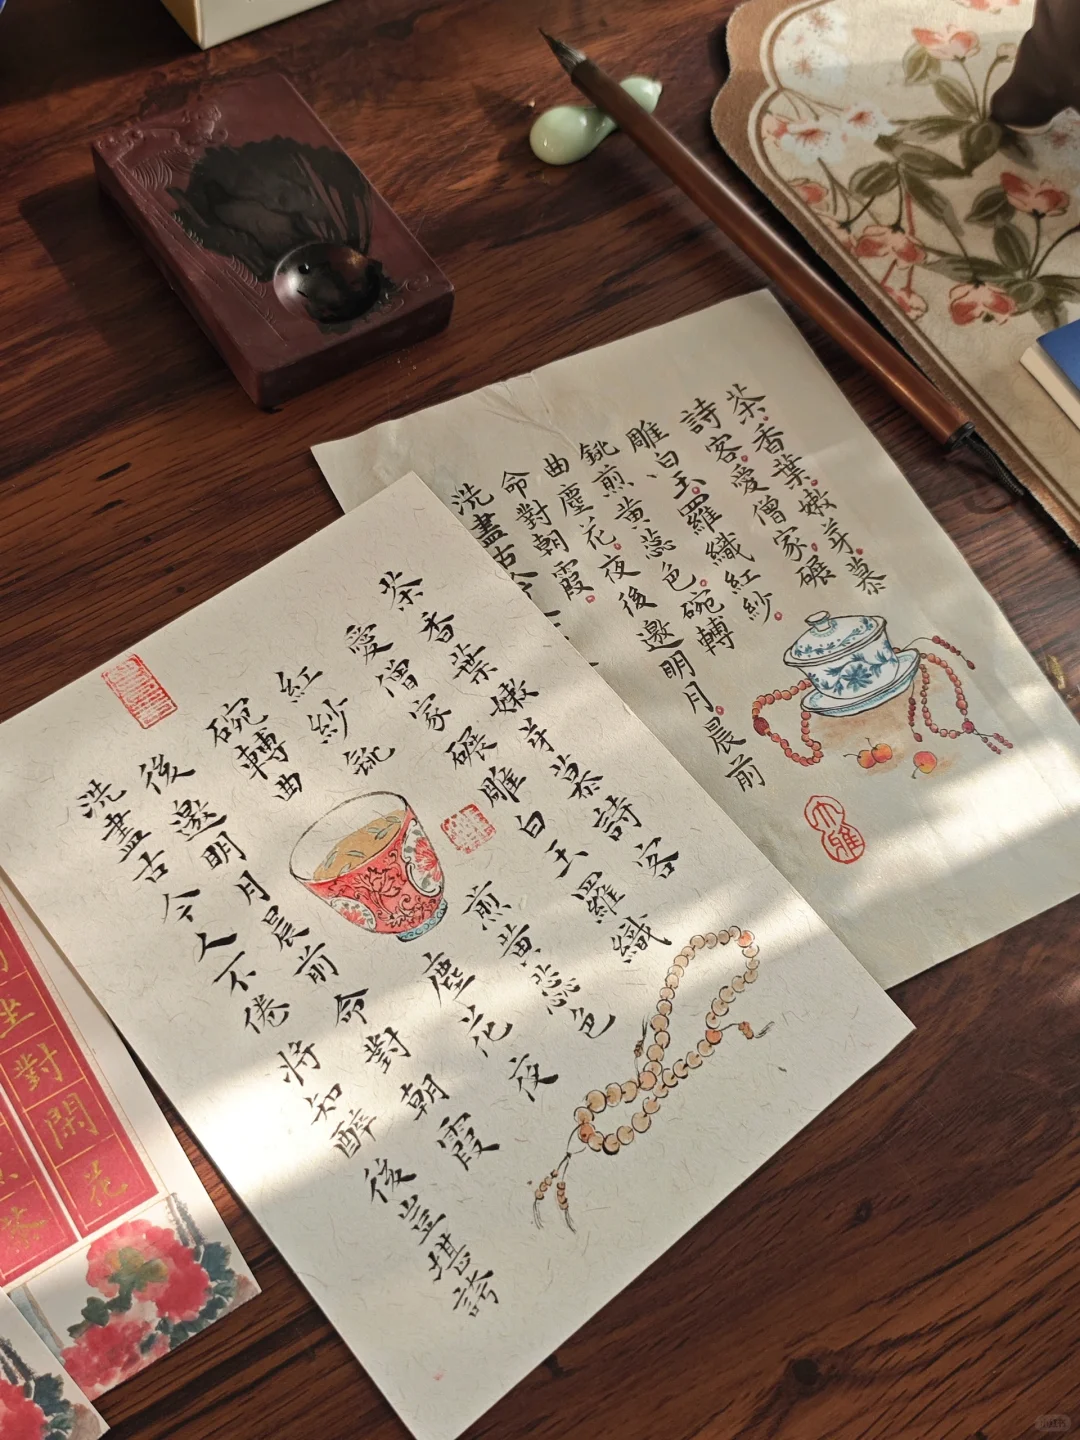 茶香葉嫩芽慕
詩客愛僧家碾
雕白玉羅織紅紗
銚煎黃蕊色碗轉
曲塵花夜後邀明月晨前
命對朝霞
洗盡古今
大雅
茶香葉嫩芽慕詩客
愛僧家碾雕白玉羅織
紅紗銚煎黃蕊色
碗轉曲塵花夜
後邀明月晨前命對朝霞
洗盡古今人不倦將知醉後豈堪誇
坐對花
茶